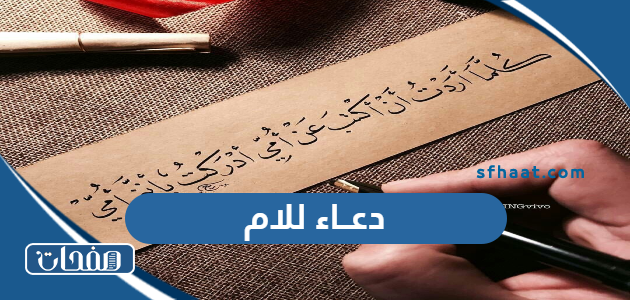 كُلَّمَا أَرَدْتُ أَنْ أَكْتُبَ عَنْ أُمِّي أَدْرَكْتُ بِأَنِّي أُمِّيٌّ
sfhaat.com
دعــاء للام
صفحات